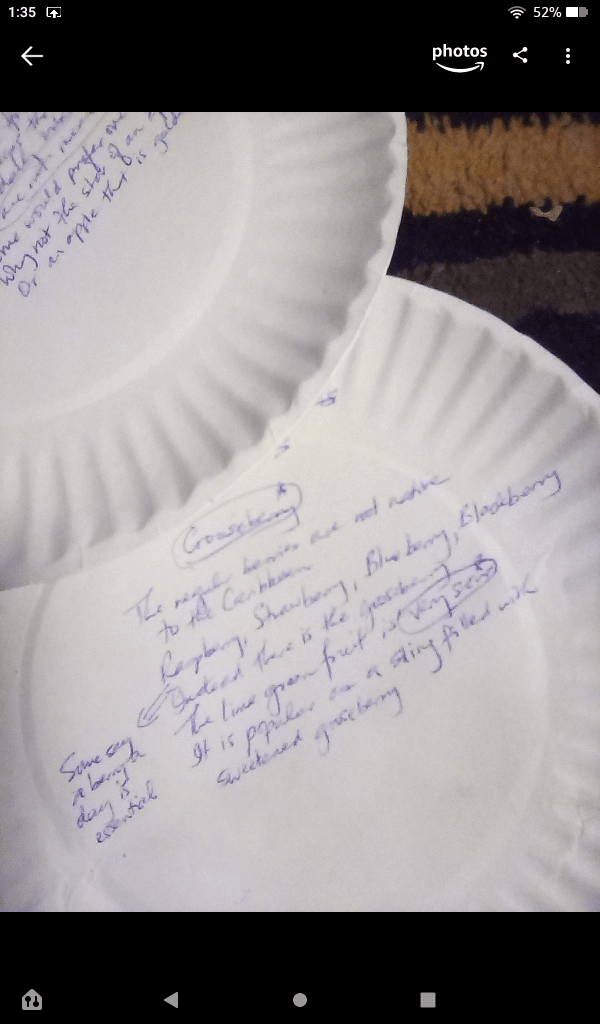 1:35
52%
photos
some would prefer
Why not the star of an
Or an apple that is
Gooseberry
The regular berries are not native
to the Caribbean
Raspberry, Strawberry, Blueberry, Blackberry
Instead there is the gooseberry
The lime green fruit is very sour
It is popular as a string filled with
sweetened gooseberry
Some say
a berry a
day is
essential